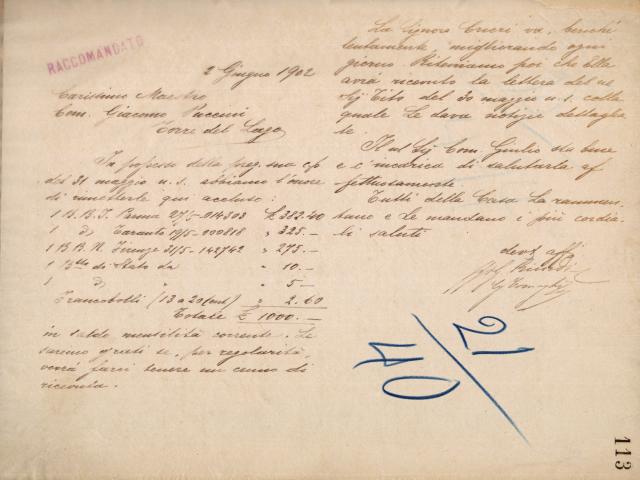 RACCOMANDATO
2 Giugno 1902
Carissimo Maestro
Com. Giacomo Puccini
Torre del Lago
In possesso della preg. sua c/p
del 31 maggio u. s. abbiamo l'onore
di rimetterle qui accluse:
1 B. B. I. Parma 27/5-014303 £ 382.40
1 d° Taranto 19/5-000818 " 325.-
1 B. B. N. Firenze 31/5-142742 " 275.-
1 B.tto di Stato da " 10.-
1 d° " " 5-
Francobolli (13 a 20 cent) " 2.60
Totale £ 1000.-
in saldo mensilità corrente. Le
saremo grati se, per regolarità,
vorrà farci tenere un cenno di
ricevuta.
La Signora Cucri va, benchè
lentamente, migliorando ogni
giorno. Riteniamo poi che Ella
avrà ricevuto la lettera del ns
Sig Tito del 30 maggio u. s. colla
quale Le dava notizie dettaglia
te.
Il ns/ Sig. Com. Giulio sta bene
e c'incarica di salutarla af
fettuosamente.
Tutti della Casa La rammen
tano e Le mandano i più cordia
li saluti
dev.i aff.i
Ricordi
21
40
113